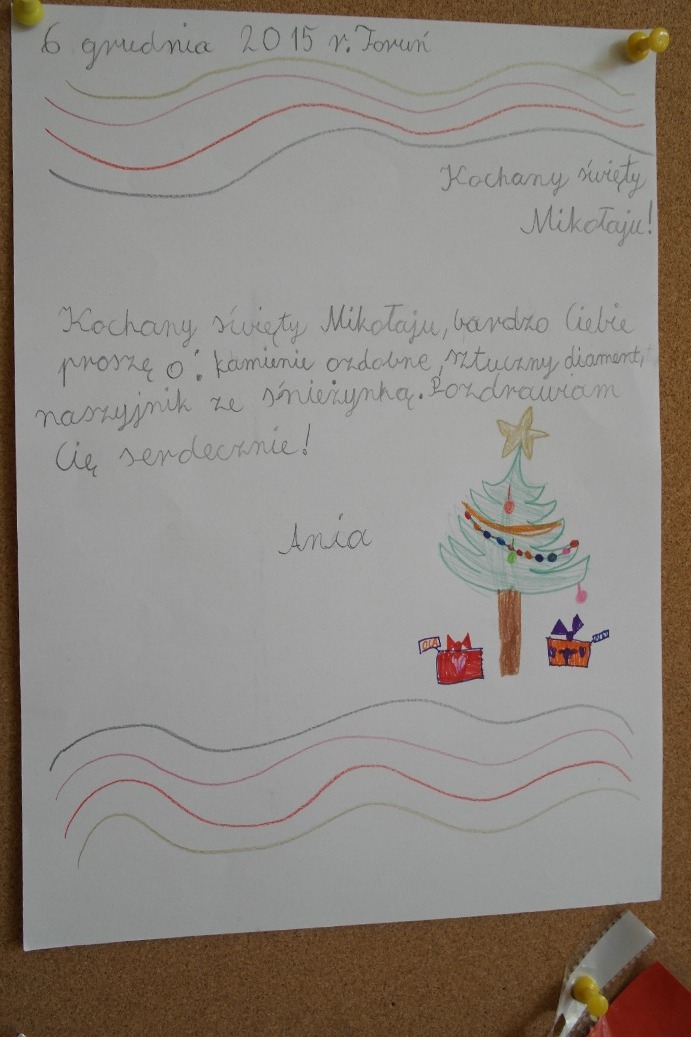 6 grudnia 2015 r. Toruń
Kochany święty
Mikołaju!
Kochany święty Mikołaju, bardzo Ciebie
proszę o: kamienie ozdobne, sztuczny diament,
naszyjnik ze śnieżynką. Pozdrawiam
Cię serdecznie!
Ania
OLA